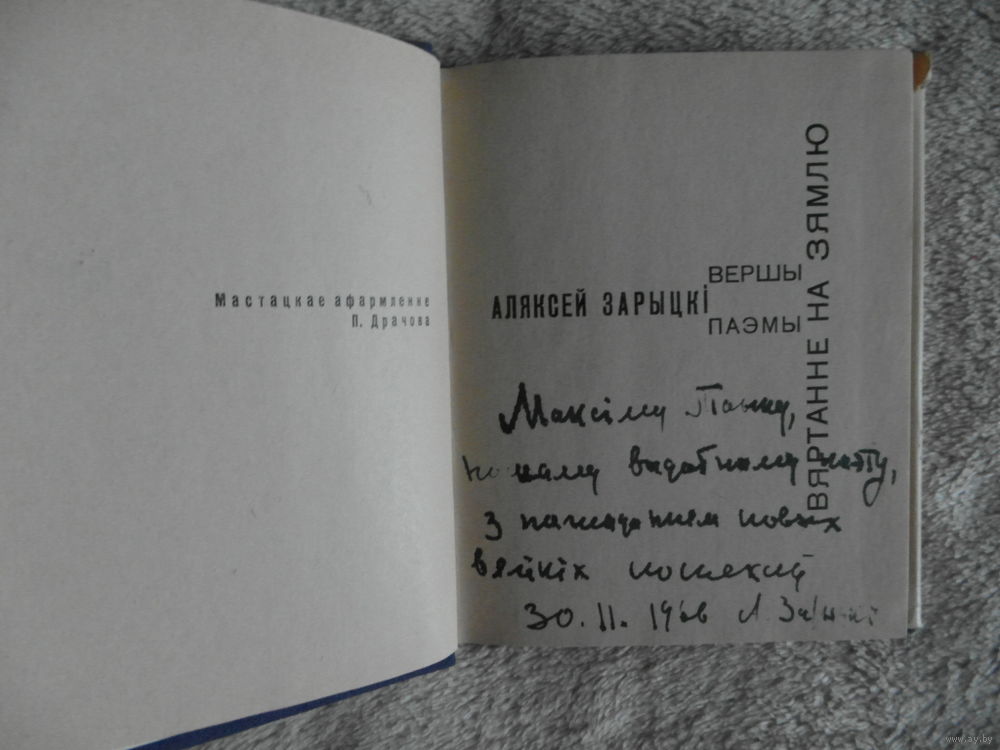 Мастацкае афармленне
П. Драчова
АЛЯКСЕЙ ЗАРЫЦКІ
ВЕРШЫ
ПАЭМЫ
ВЯРТАННЕ НА ЗЯМЛЮ
Максіму Танку,
нашаму выдатнаму паэту,
з пажаданнем новых
вялікіх поспехаў
30.11.1966 А. Зарыцкі
www.ay.by